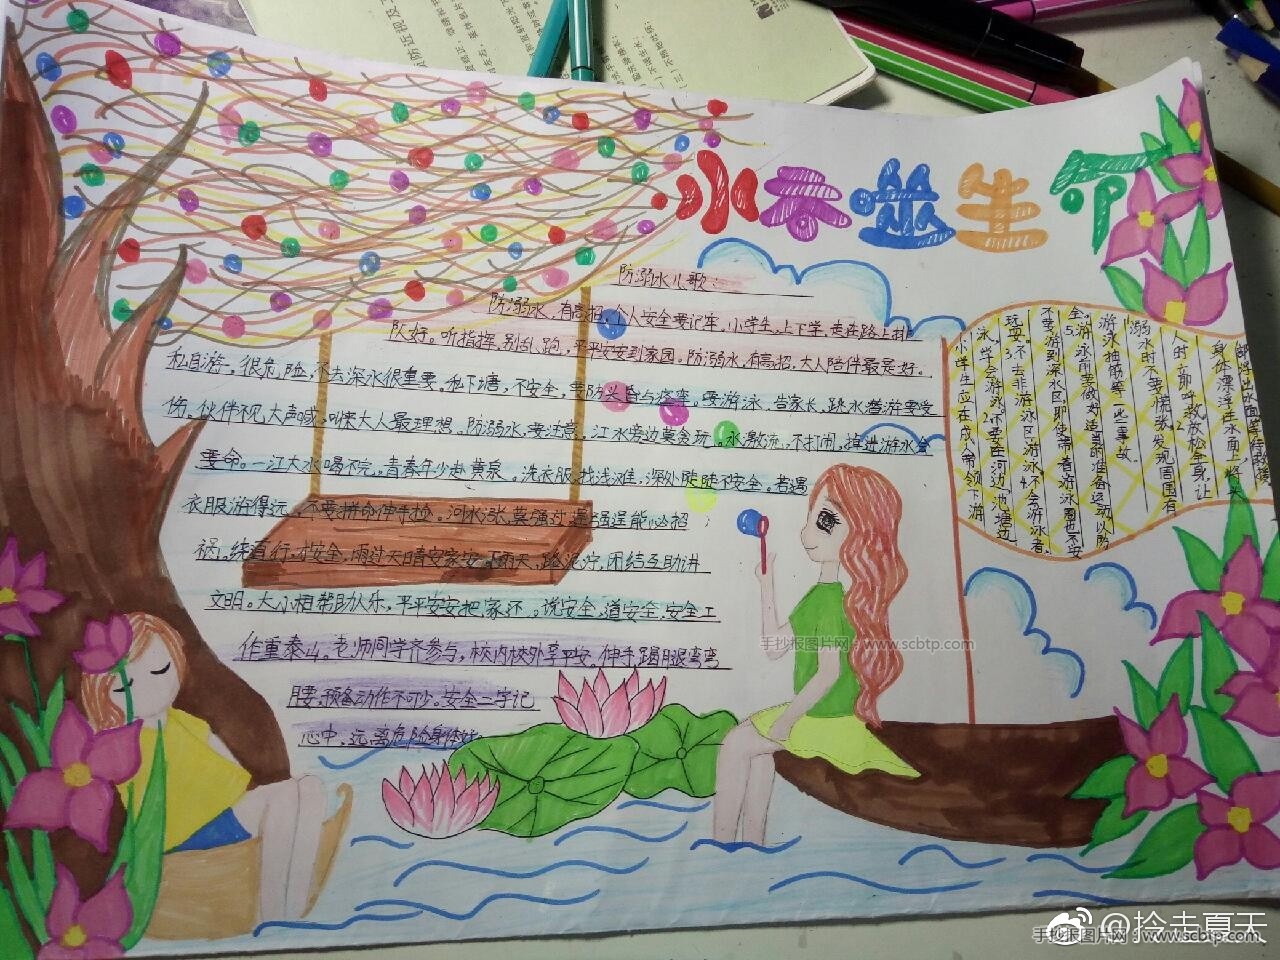 水吞啦生命
防溺水儿歌:
防溺水,有高招,个人安全要记牢,小学生,上下学,走在路上排
队好。听指挥,别乱跑,平平安安到家园。防溺水,有高招,大人陪伴最是好。
私自游。很危险,不去深水很重要。私下塘,不安全,要防头昏与痉挛。要游泳,告家长,跌水潜游要受
伤。伙伴不见大声喊,叫来大人最理想。防溺水,要注意。江水旁边莫贪玩。水激流,不打闹,掉进游水会
要命。一江大水喝不完,青春年少赴黄泉。洗衣服,找浅滩,深处陡陡不安全。若遇
衣服游得远,不要拼命伸手捡。河水涨,莫强过,逞强逞能必招
祸。绕直行,才安全,雨过天晴安家安。下雨天,路泥泞,团结互助讲
文明。大小相帮助人乐,平平安安把家还。说安全,道安全,安全工
作重泰山。老师同学齐参与,校内校外享平安。伸手踢腿弯弯
腰,预备动作不可少。安全二字记
心中,远离危险身体好。
小学生应在成人带领下游
泳,学会游泳。2.不要在河边、池塘边
玩耍。3.不去非游泳区游泳。4.不会游泳者,
不要游到深水区,即使带着游泳圈也不安
全。5.游泳前要做好适当的准备运动,以防
游泳抽筋等一些事故。
溺水时不要慌张,发现周围有
人时立即呼救,放松全身,让
身体漂浮在水面上,将头
部浮出水面
手抄报图片网 - www.scbtp.com
@拎走夏天
手抄报图片网 - www.scbtp.com